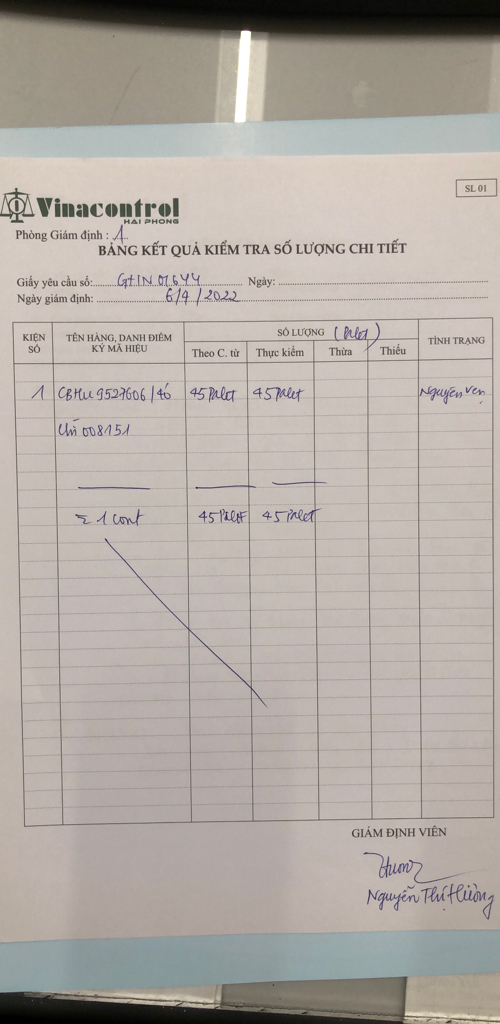 SL 01
Vinacontrol
HAI PHONG
Phòng Giám định : 1
BẢNG KẾT QUẢ KIỂM TRA SỐ LƯỢNG CHI TIẾT
Giấy yêu cầu số: GHIN 01644 Ngày:
Ngày giám định: 6/4/2022
KIỆN SỐ
TÊN HÀNG, DANH ĐIỂM KÝ MÃ HIỆU
SỐ LƯỢNG (Palet)
TÌNH TRẠNG
Theo C. từ Thực kiểm Thừa Thiếu
1 CBHU 9527606/40 45 Palet 45 Palet Nguyên vẹn
008151
Σ 1 cont 45 Palet 45 Palet
GIÁM ĐỊNH VIÊN
Hương
Nguyễn Thị Hường